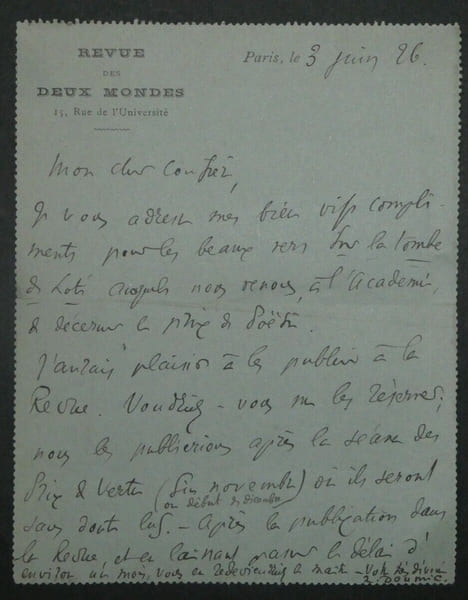 REVUE
DES
DEUX MONDES
15, Rue de l'Université
Paris, le 3 juin 26.
Mon cher Confrère,
Je vous adresse mes bien vifs compli-
ments pour les beaux vers Sur la tombe
de Loti auxquels nous venons, à l'Académie,
de décerner le prix de Poésie.
J'aurais plaisir à les publier à la
Revue. Voudriez-vous me les réserver;
nous les publierions après la séance des
Prix de Vertu (fin novembre
ou début de décembre) où ils seront
sans doute lus. - Après la publication dans
la Revue et en laissant passer le délai d'
environ un mois, vous en redeviendrez le maître - Votre
R. Doumic.